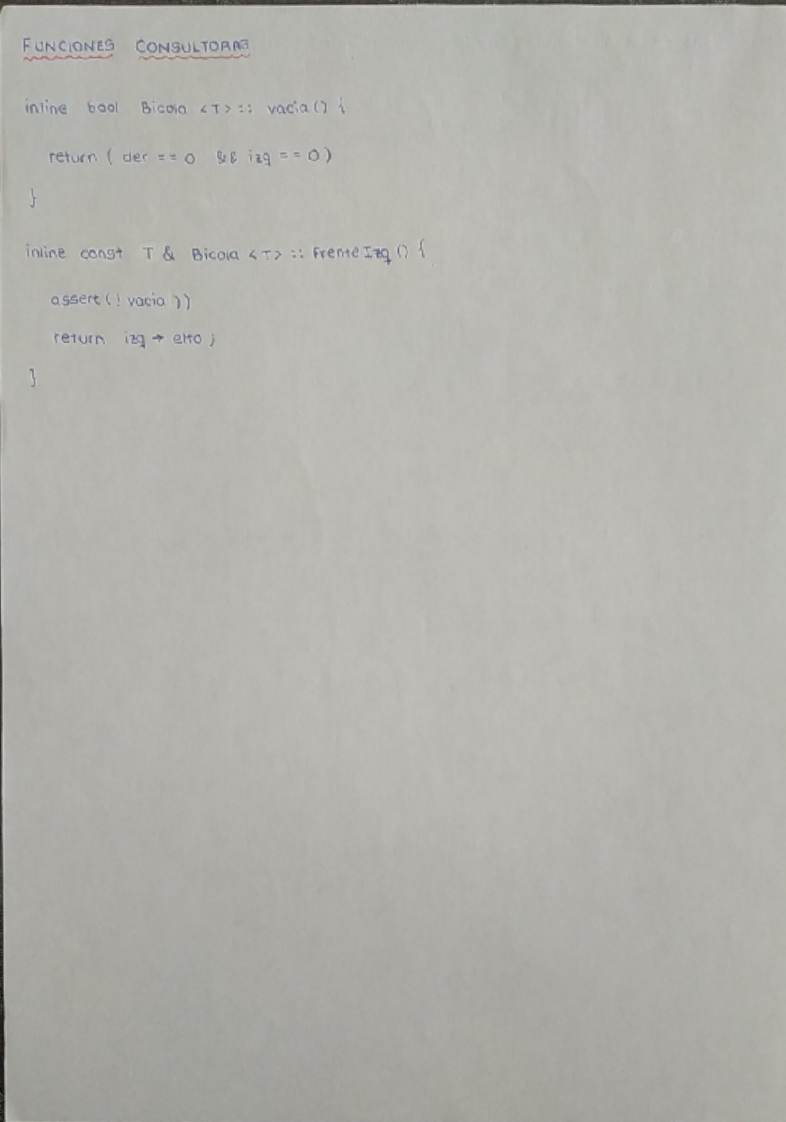 FUNCIONES CONSULTORAS
inline bool Bicola <T> :: vacia() {
return ( der == 0 && izq == 0)
}
inline const T & Bicola <T> :: FrenteIzq () {
assert (! vacia ))
return izq → elto ;
}